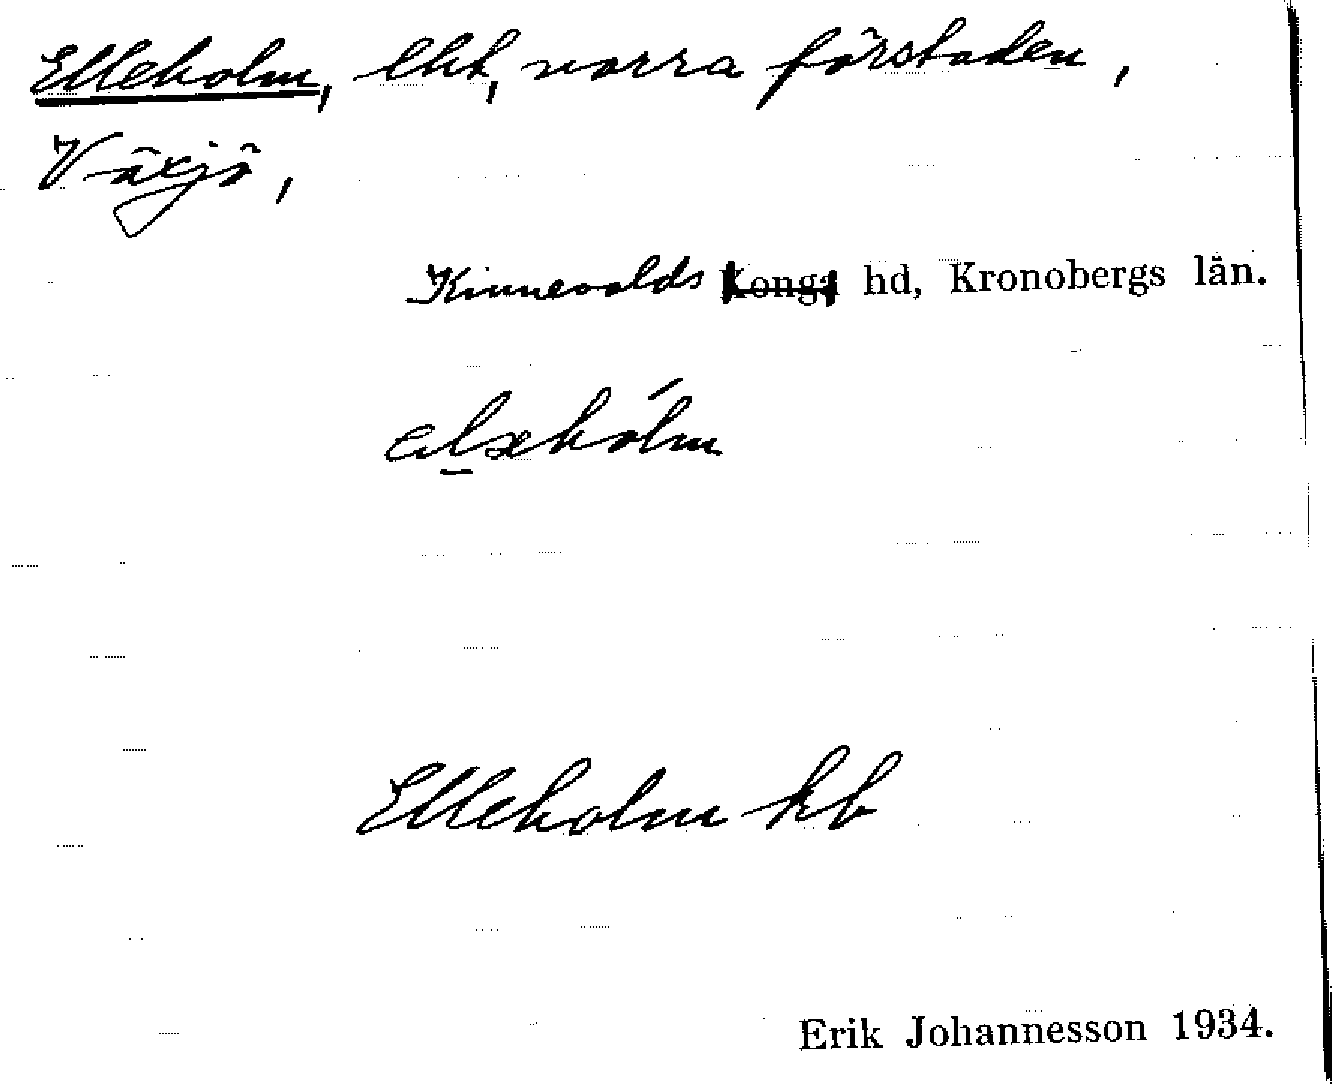 Elleholm, lht, norra förstaden,
Växjö,
Kinnevalds Konga hd, Kronobergs län.
Elleholm kb
Erik Johannesson 1934.